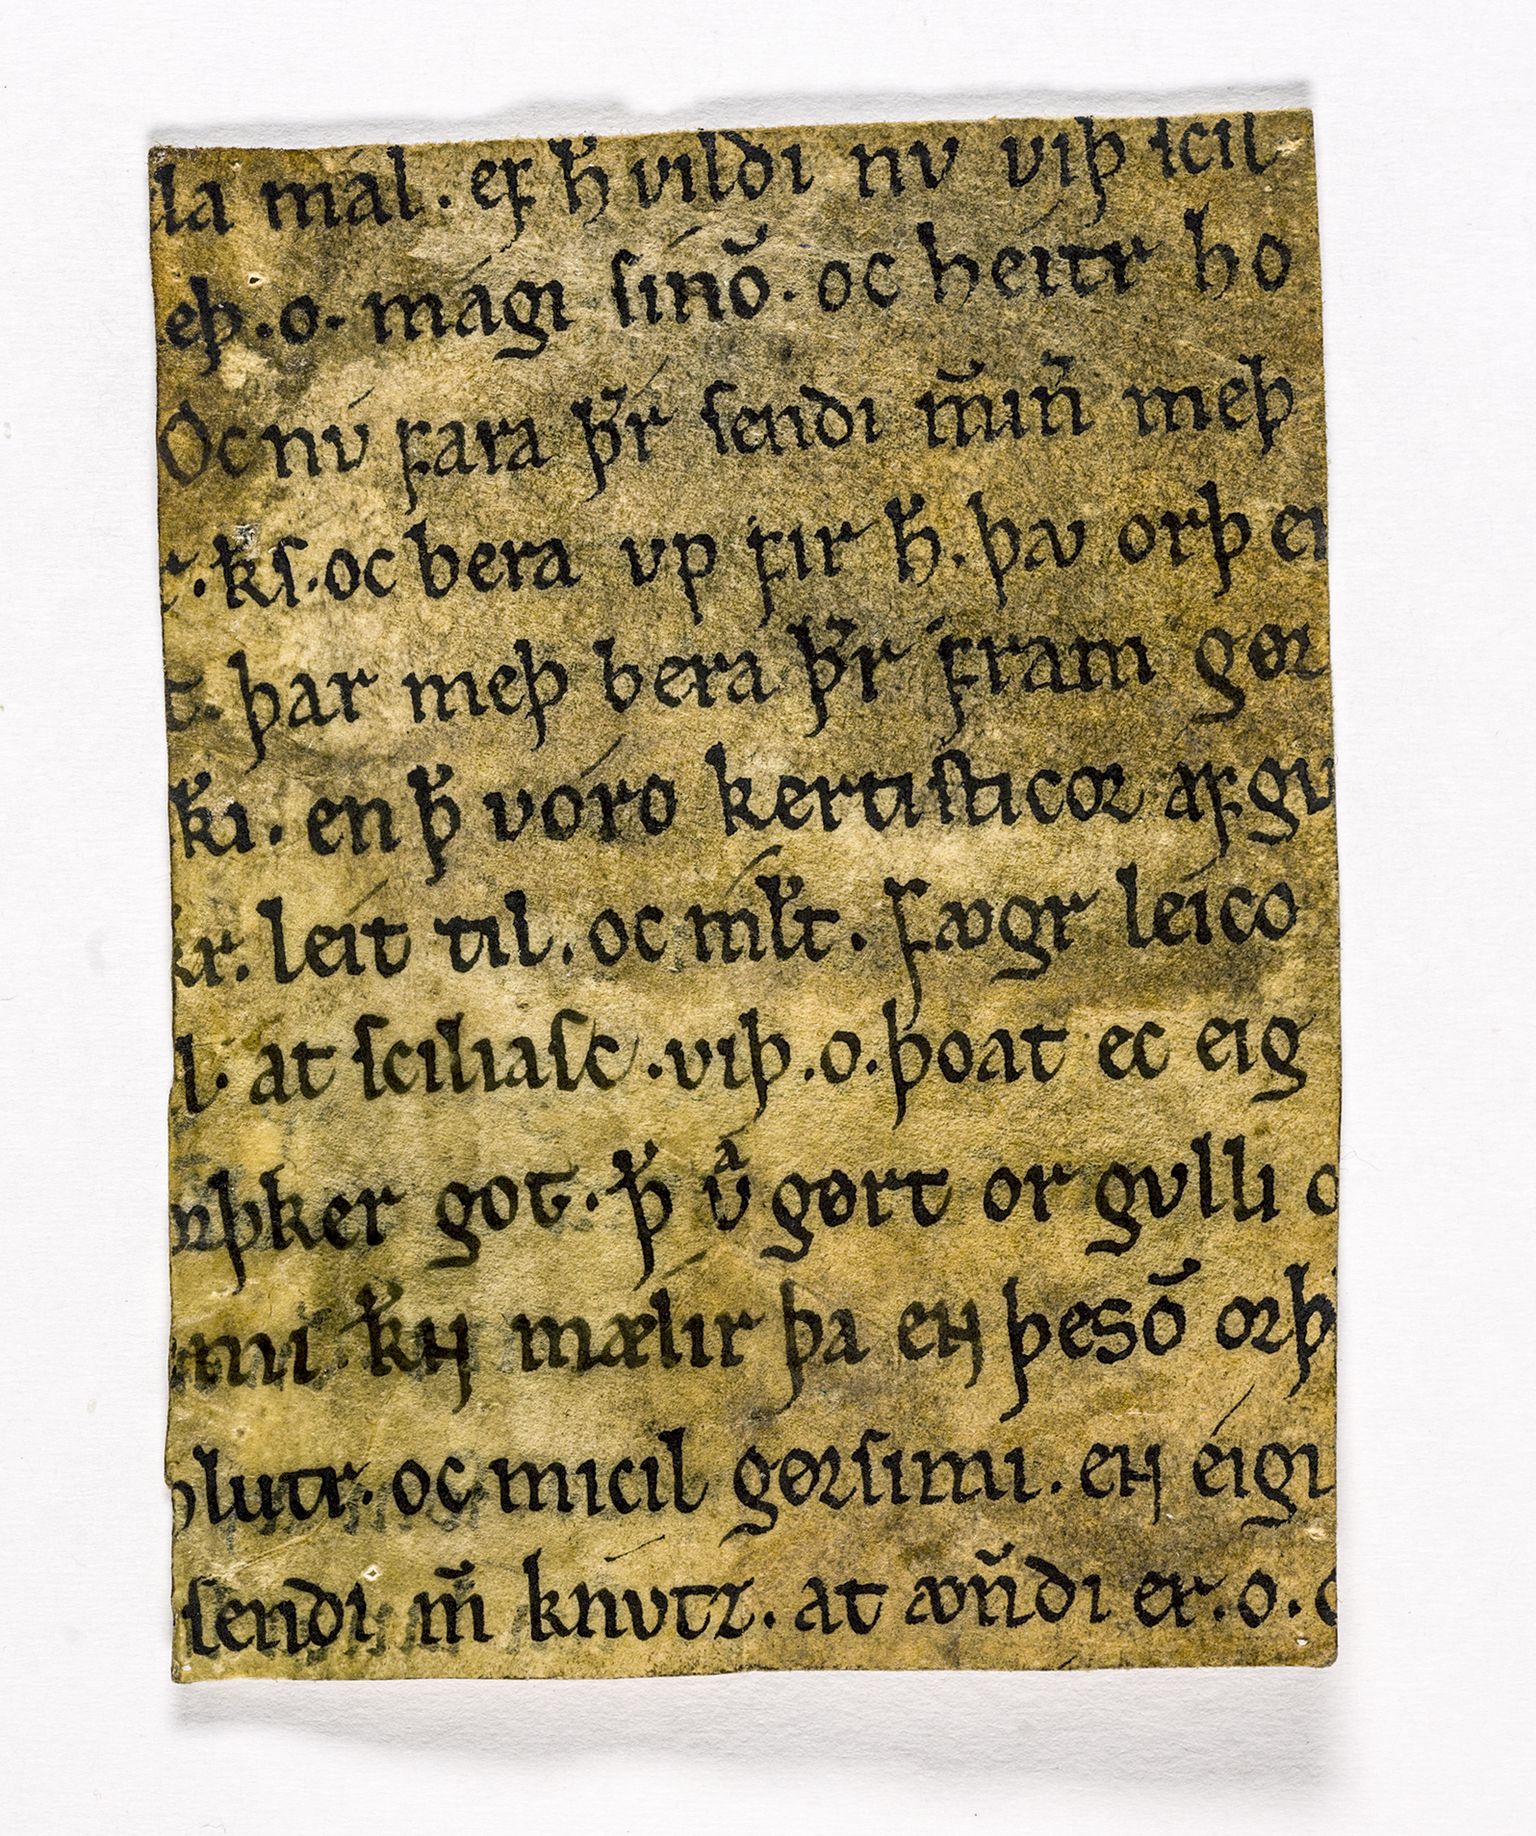 la mál. eꝼ h̅ vilꝺi nv viþ ſcil
eþ .o. mági ſinō. oc heítr ho
Oc nv́ ꝼara þ̅r ſenꝺi m̅in̅ meþ
. k̅ſ. oc bera vp ꝼir h̅. þꜹ orþ en
t. þar meþ bera þ̅r ꝼram gøꝛ
k̅i. en þ̅ vóro kertiſticoꝛ aꝼ gv
kr. leít til. oc ml̅t. ꝼꜹgr leíco
l. at ſciliaſc. viþ .o. þoat ec eig
oꝛþker got. þ̅ vͣ gørt or gvlli o
mi k̅ɴ mælir þa eɴ þesō oꝛþ
hlutr. oc micil gøꝛſimi. eɴ éigi
ſenꝺi m̅ knv́tꝛ. at ꜹn̅ꝺi er .o. o